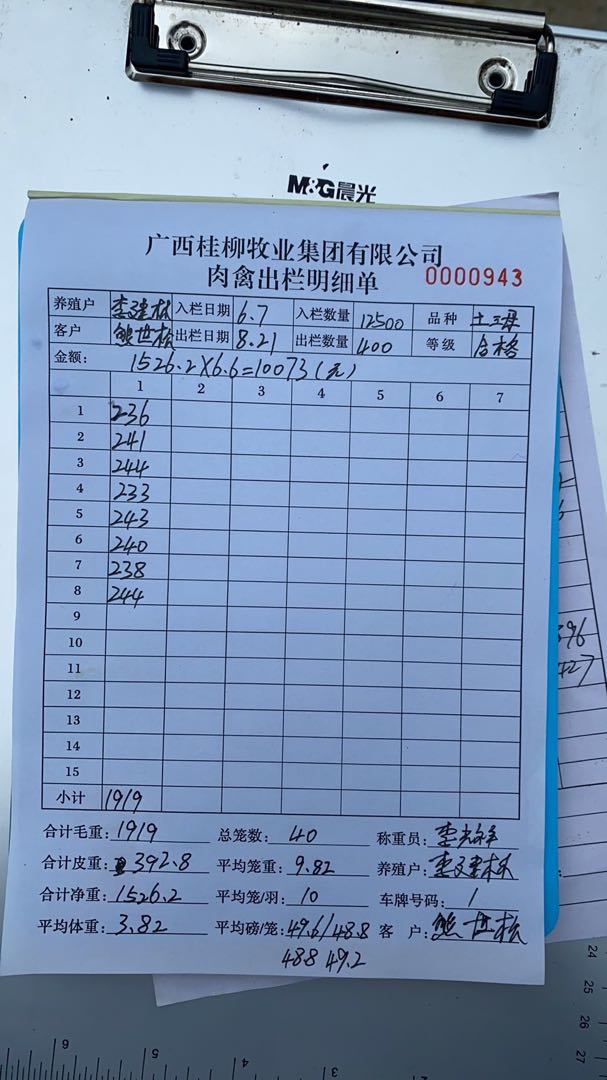 M&G晨光
广西桂柳牧业集团有限公司
肉禽出栏明细单 0000943
养殖户 入栏日期 6.7 入栏数量 12500 品种
客户 熊世松 出栏日期 8.21 出栏数量 400 等级 合格
金额: 1526.2×6.6=10073(元)
1 2 3 4 5 6 7
1 236
2 241
3 244
4 233
5 243
6 240
7 238
8 244
9
10
11
12
13
14
15
小计 1919
合计毛重: 1919 总笼数: 40 称重员:
合计皮重: 392.8 平均笼重: 9.82 养殖户:
合计净重: 1526.2 平均笼/羽: 10 车牌号码: 1
平均体重: 3.82 平均磅/笼: 49.6/48.8 客户: 熊世松
488 49.2
396
427
24
25
26
27
6
5
4
3
2